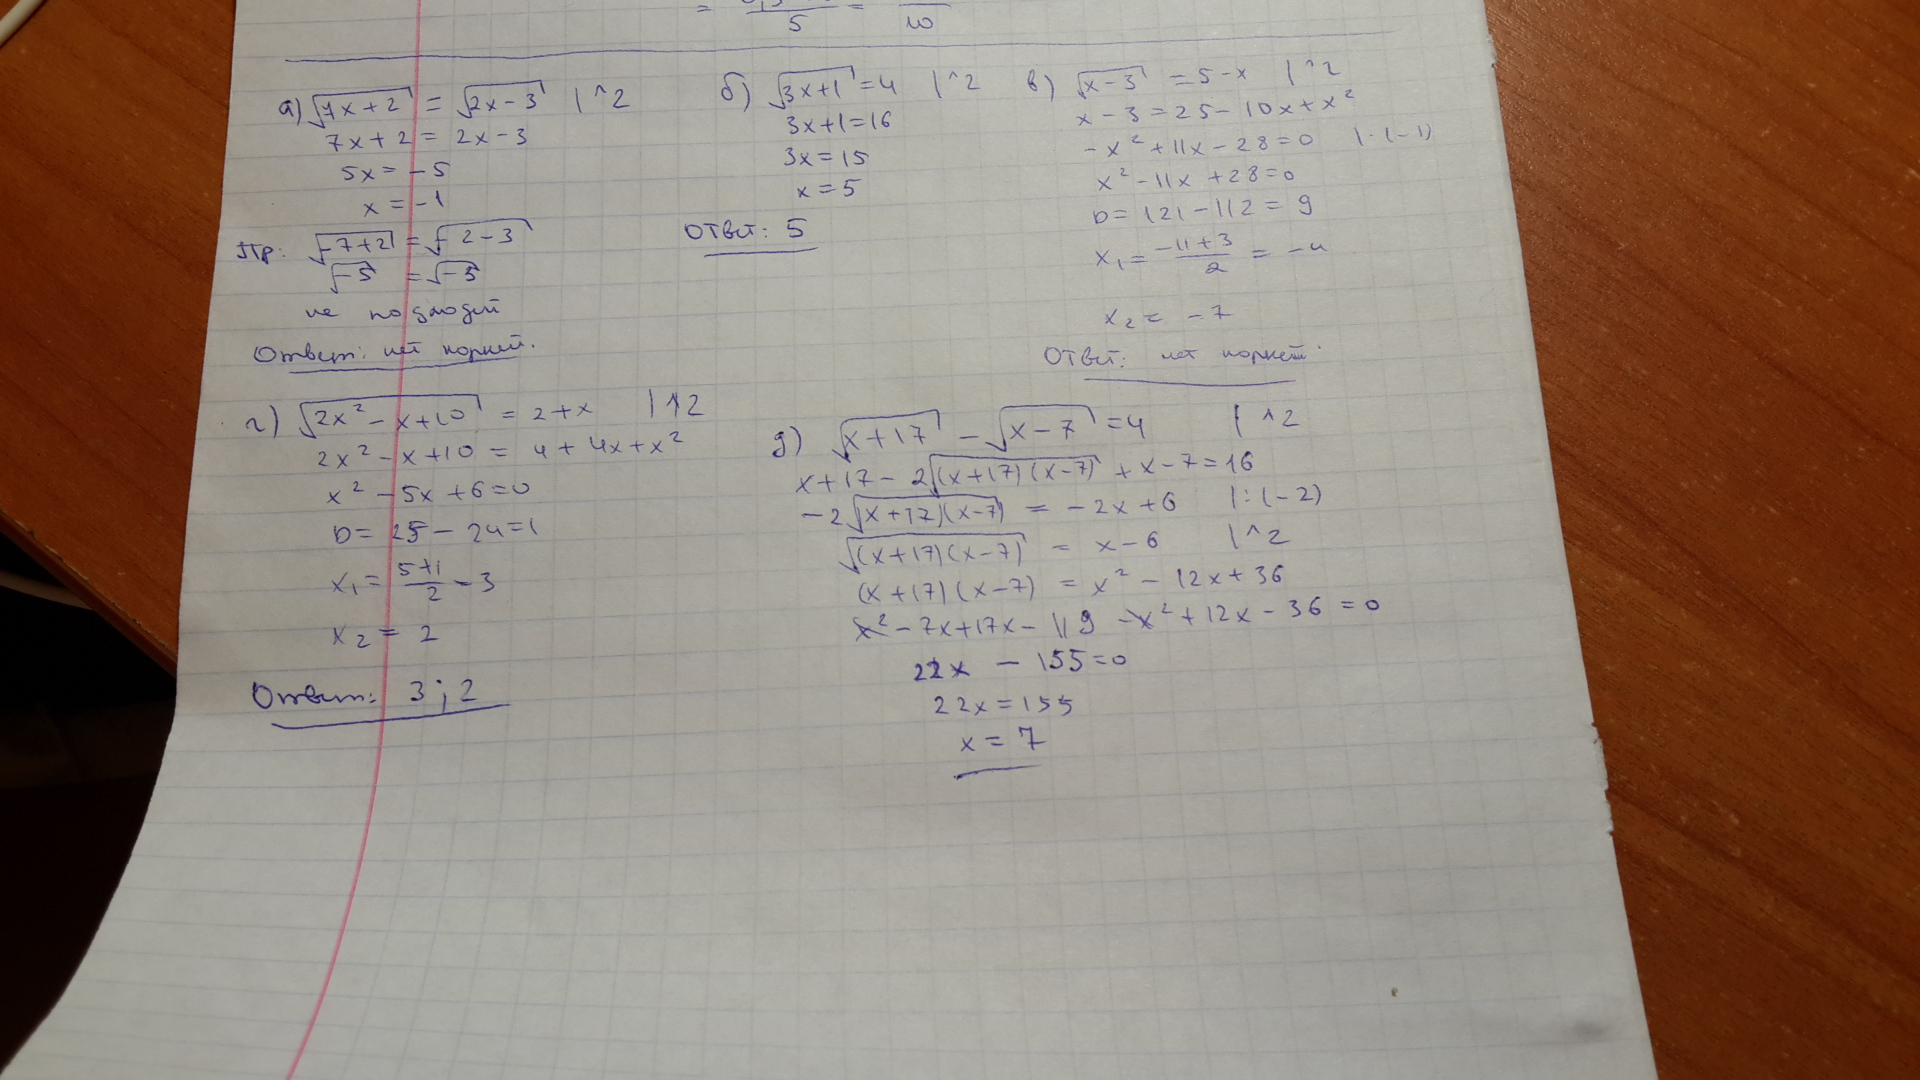 = 5 = 10
а) √(7x+2) = √(2x-3) | ^2
7x+2 = 2x-3
5x = -5
x = -1
Пр: √(-7+2) = √(-2-3)
√-5 = √-5
не подходит
Ответ: нет корней.
б) √(3x+1) = 4 | ^2
3x+1=16
3x=15
x=5
Ответ: 5
в) √(x-3) = 5-x | ^2
x-3=25-10x+x²
-x²+11x-28=0 | ·(-1)
x²-11x+28=0
D=121-112=9
x₁= (-11+3)/2 = -4
x₂= -7
Ответ: нет корней.
г) √(2x²-x+10) = 2+x | ^2
2x²-x+10 = 4+4x+x²
x²-5x+6=0
D=25-24=1
x₁= (5+1)/2 = 3
x₂= 2
Ответ: 3; 2
д) √(x+17) - √(x-7) = 4 | ^2
x+17-2√((x+17)(x-7)) + x-7=16
-2√((x+17)(x-7)) = -2x+6 | :(-2)
√((x+17)(x-7)) = x-6 | ^2
(x+17)(x-7) = x²-12x+36
x²-7x+17x-119-x²+12x-36=0
22x - 155=0
22x=155
x=7